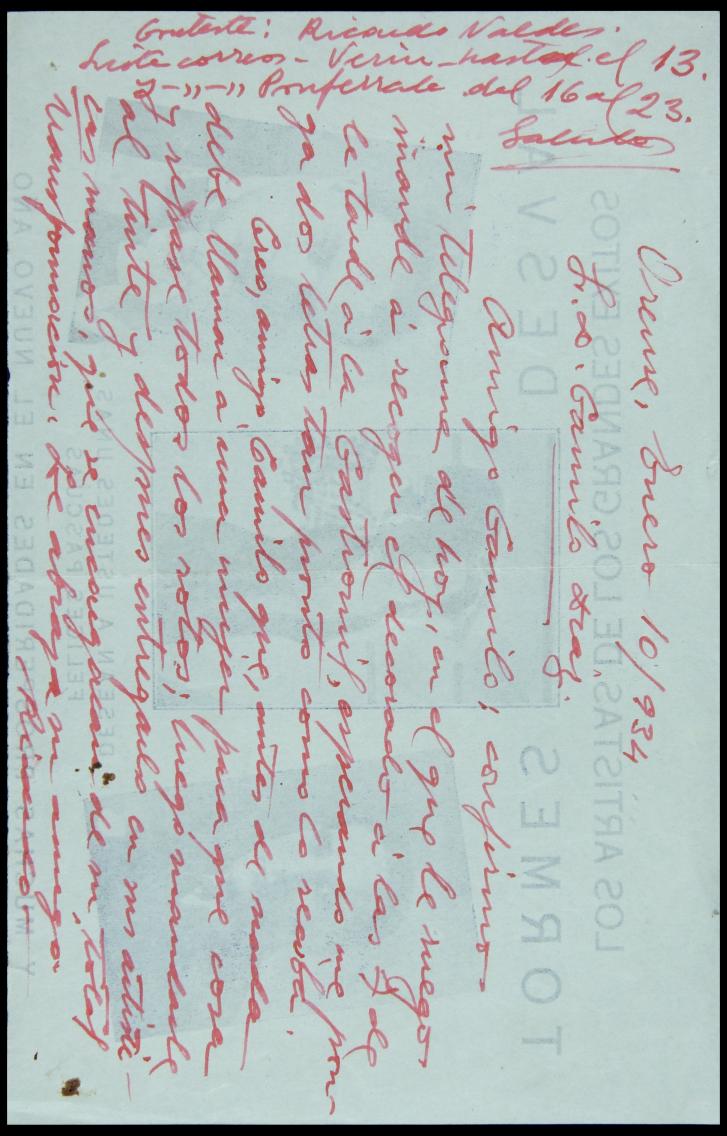 Orense, Enero 10/934
Sr. D. Camilo Diaz.
Amigo Camilo; confirmo
mi telegrama de hoy, en el que le ruego
mande á recoger el decorado á las 7 de
la tarde á la Gastronu, esperando me pon-
ga dos letras tan pronto como lo reciba.
Creo, amigo Camilo que, antes de nada
debe llamar á una mujer para que cosa
y repase todos los rotos; luego mandarle
al tinte y despues entregarlo en sus artisti-
cas manos que se encargarán de su total
transformación. Le abraza su amigo
Ricardo
Conteste: Ricardo Valdes.
Lista correos - Verin - hasta el 13.
y -,,-,, Ponferrada del 16 al 23.
Saludos
LOS ARTISTAS DE LOS GRANDES EXITOS
TORMES DESVAL
DESEAN A USTEDES UNAS
FELICES PASCUAS
Y MUCHAS PROSPERIDADES EN EL NUEVO AÑO